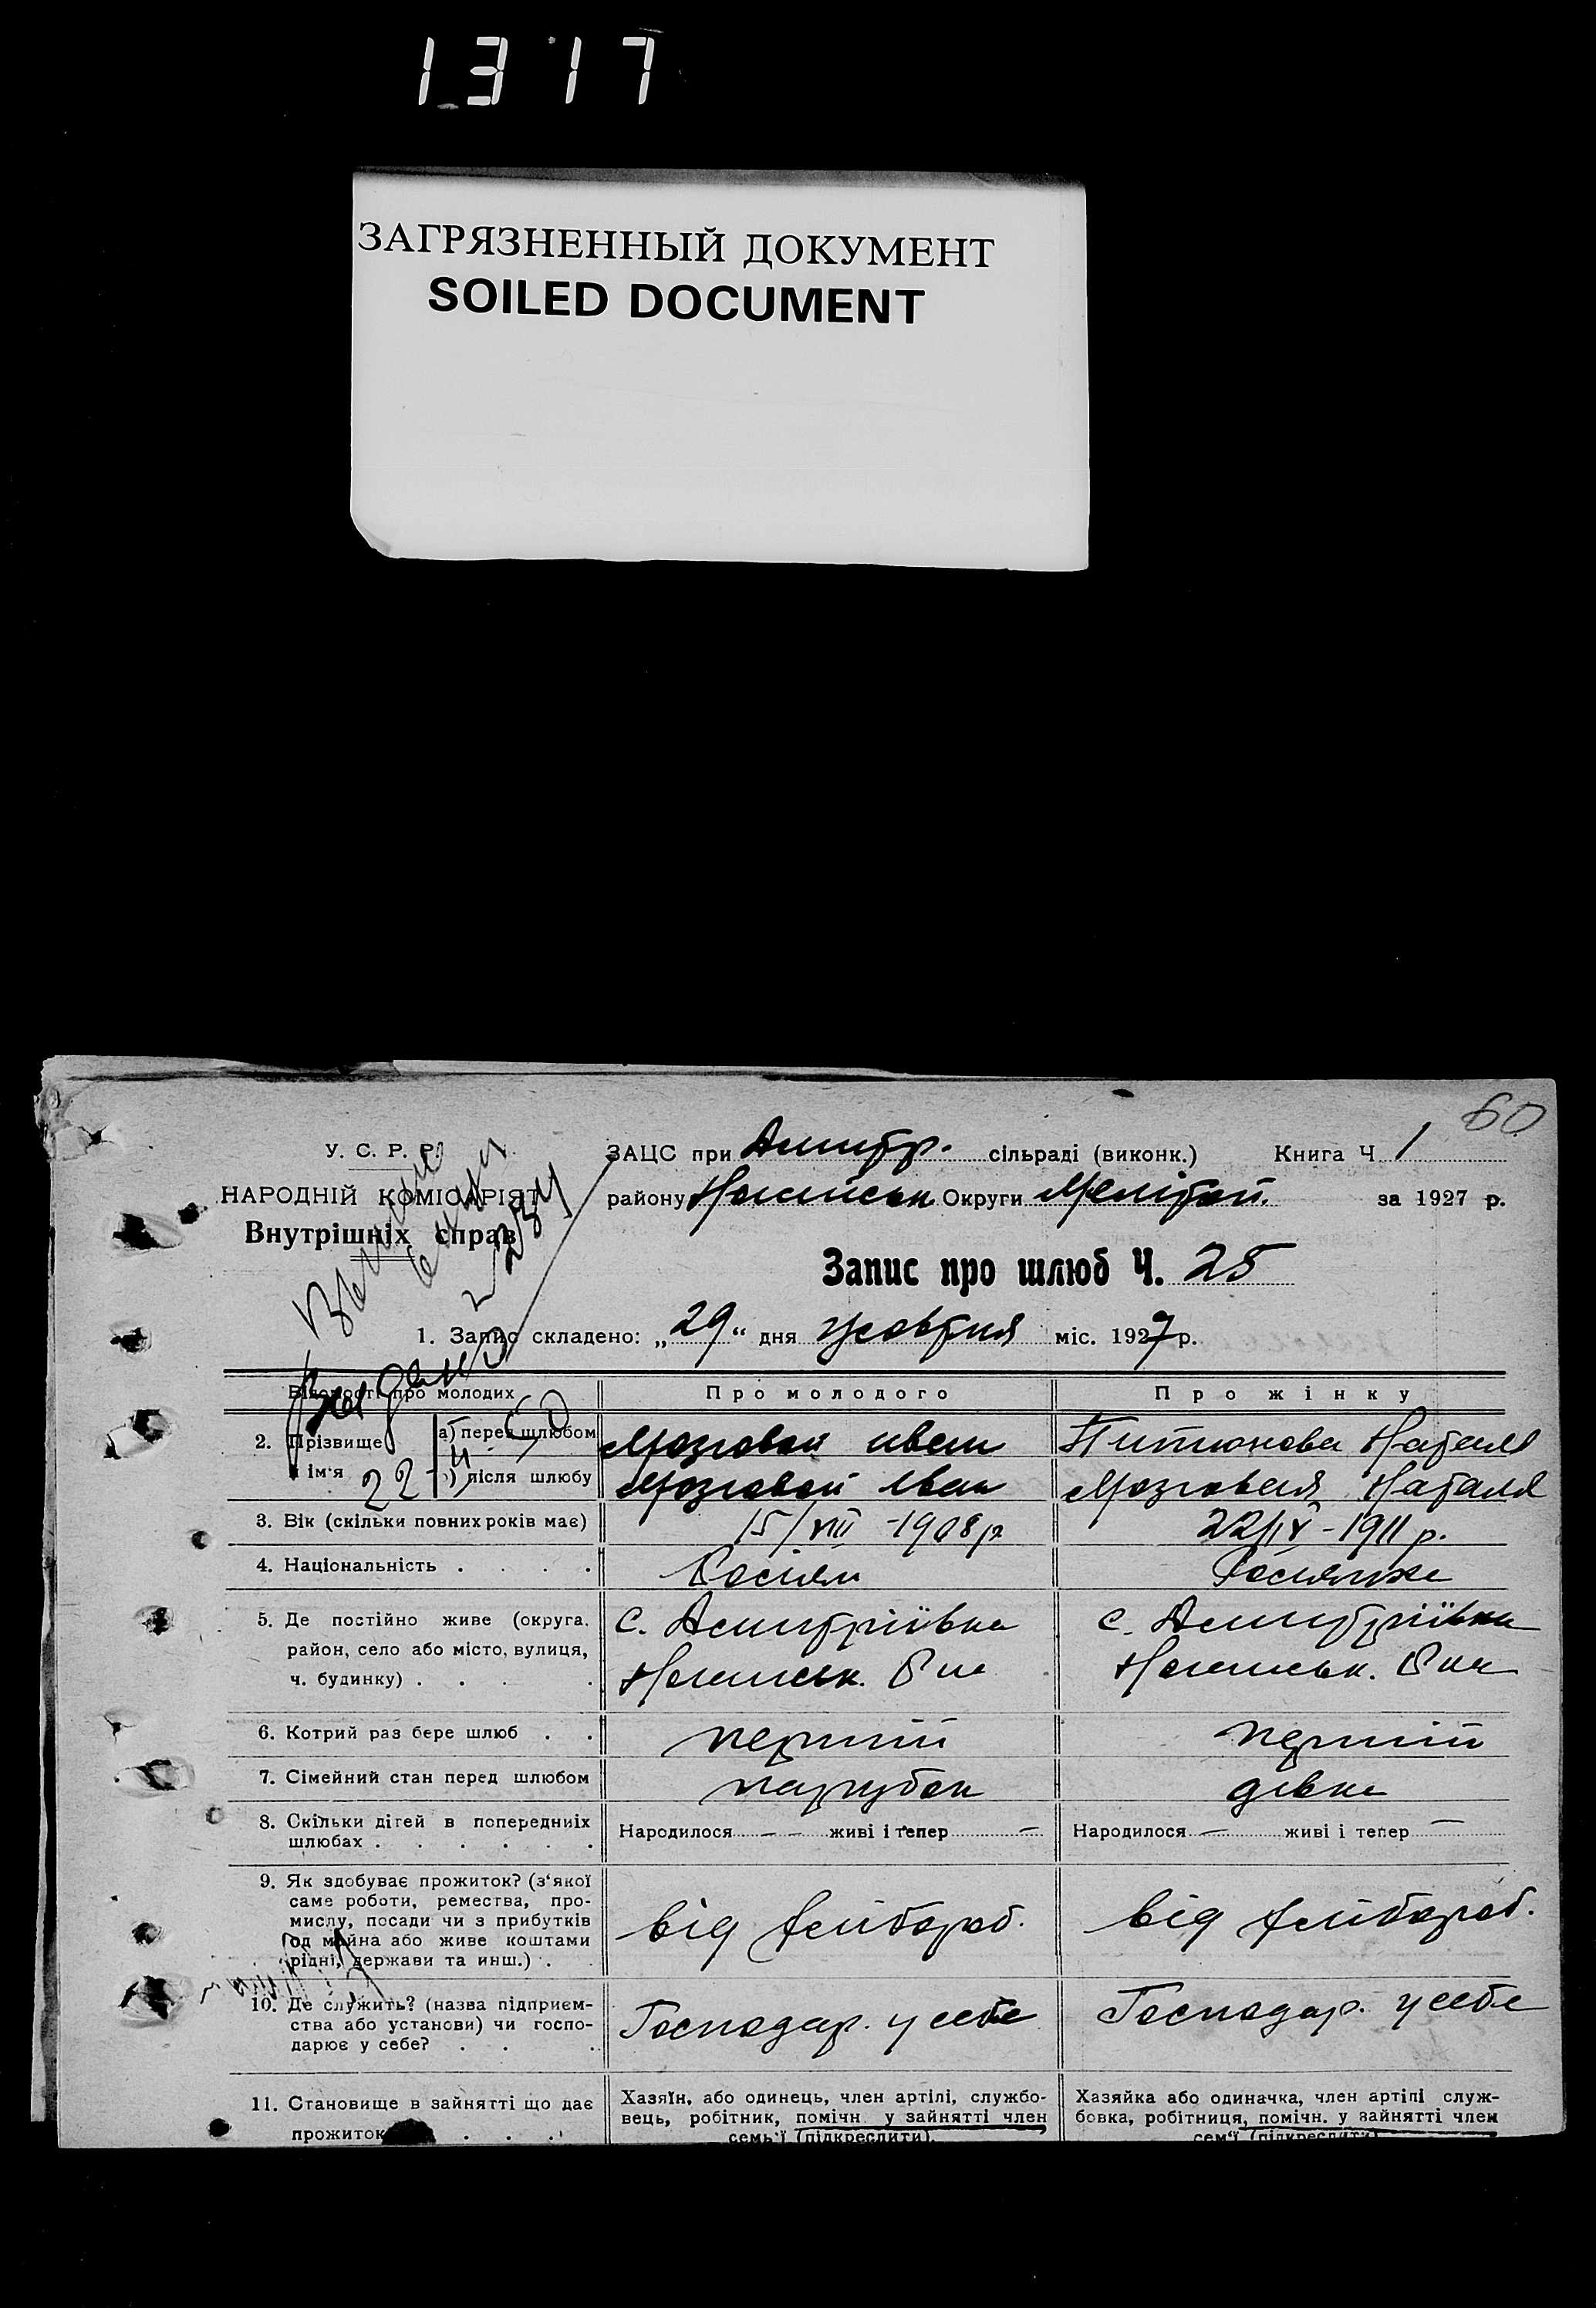 1317
ЗАГРЯЗНЕННЫЙ ДОКУМЕНТ
SOILED DOCUMENT
60
У. С. Р. Р.
НАРОДНІЙ КОМІСАРІЯТ
Внутрішніх справ
ЗАЦС при Дмитр. сільраді (виконк.) Книга Ч. 1
району Ногайськ Округи Мелітоп. за 1927 р.
Запис про шлюб Ч. 25
1. Запис складено: „29“ дня жовтня міс. 1927 р.
Відомості про молодих
Про молодого
Про жінку
2. Прізвище й ім'я
а) перед шлюбом
Мозговой иван
Питюнова Наталя
б) після шлюбу
Мозговой Иван
Мозговая Наталя
22
3. Вік (скільки повних років має)
15/VIII - 1908 р
22/IV - 1911 р.
4. Національність . . . .
Росіян
Росиянка
5. Де постійно живе (округа,
район, село або місто, вулиця,
ч. будинку) . . . .
с. Дмитріївка
Ногайськ. Р-на
с. Дмитріївка
Ногайськ. Р-на
6. Котрий раз бере шлюб . .
перший
перший
7. Сімейний стан перед шлюбом
парубок
дівка
8. Скільки дітей в попередниіх
шлюбах . . . . . .
Народилося - - живі і тепер -
Народилося - живі і тепер -
9. Як здобуває прожиток? (з'якої
саме роботи, ремества, про-
мислу, посади чи з прибутків
од майна або живе коштами
рідні, держави та инш.) . .
від хлібороб.
від хлібороб.
10. Де служить? (назва підприєм-
ства або установи) чи госпо-
дарює у себе? . . .
Господар. у себе
Господар. у себе
11. Становище в зайнятті що дає
прожиток . . . .
Хазяїн, або одинець, член артілі, службо-
вець, робітник, помічн. у зайнятті член
семь'ї (підкреслити).
Хазяйка або одиначка, член артілі служ-
бовка, робітниця, помічн. у зайнятті член
сем'ї (підкреслити)